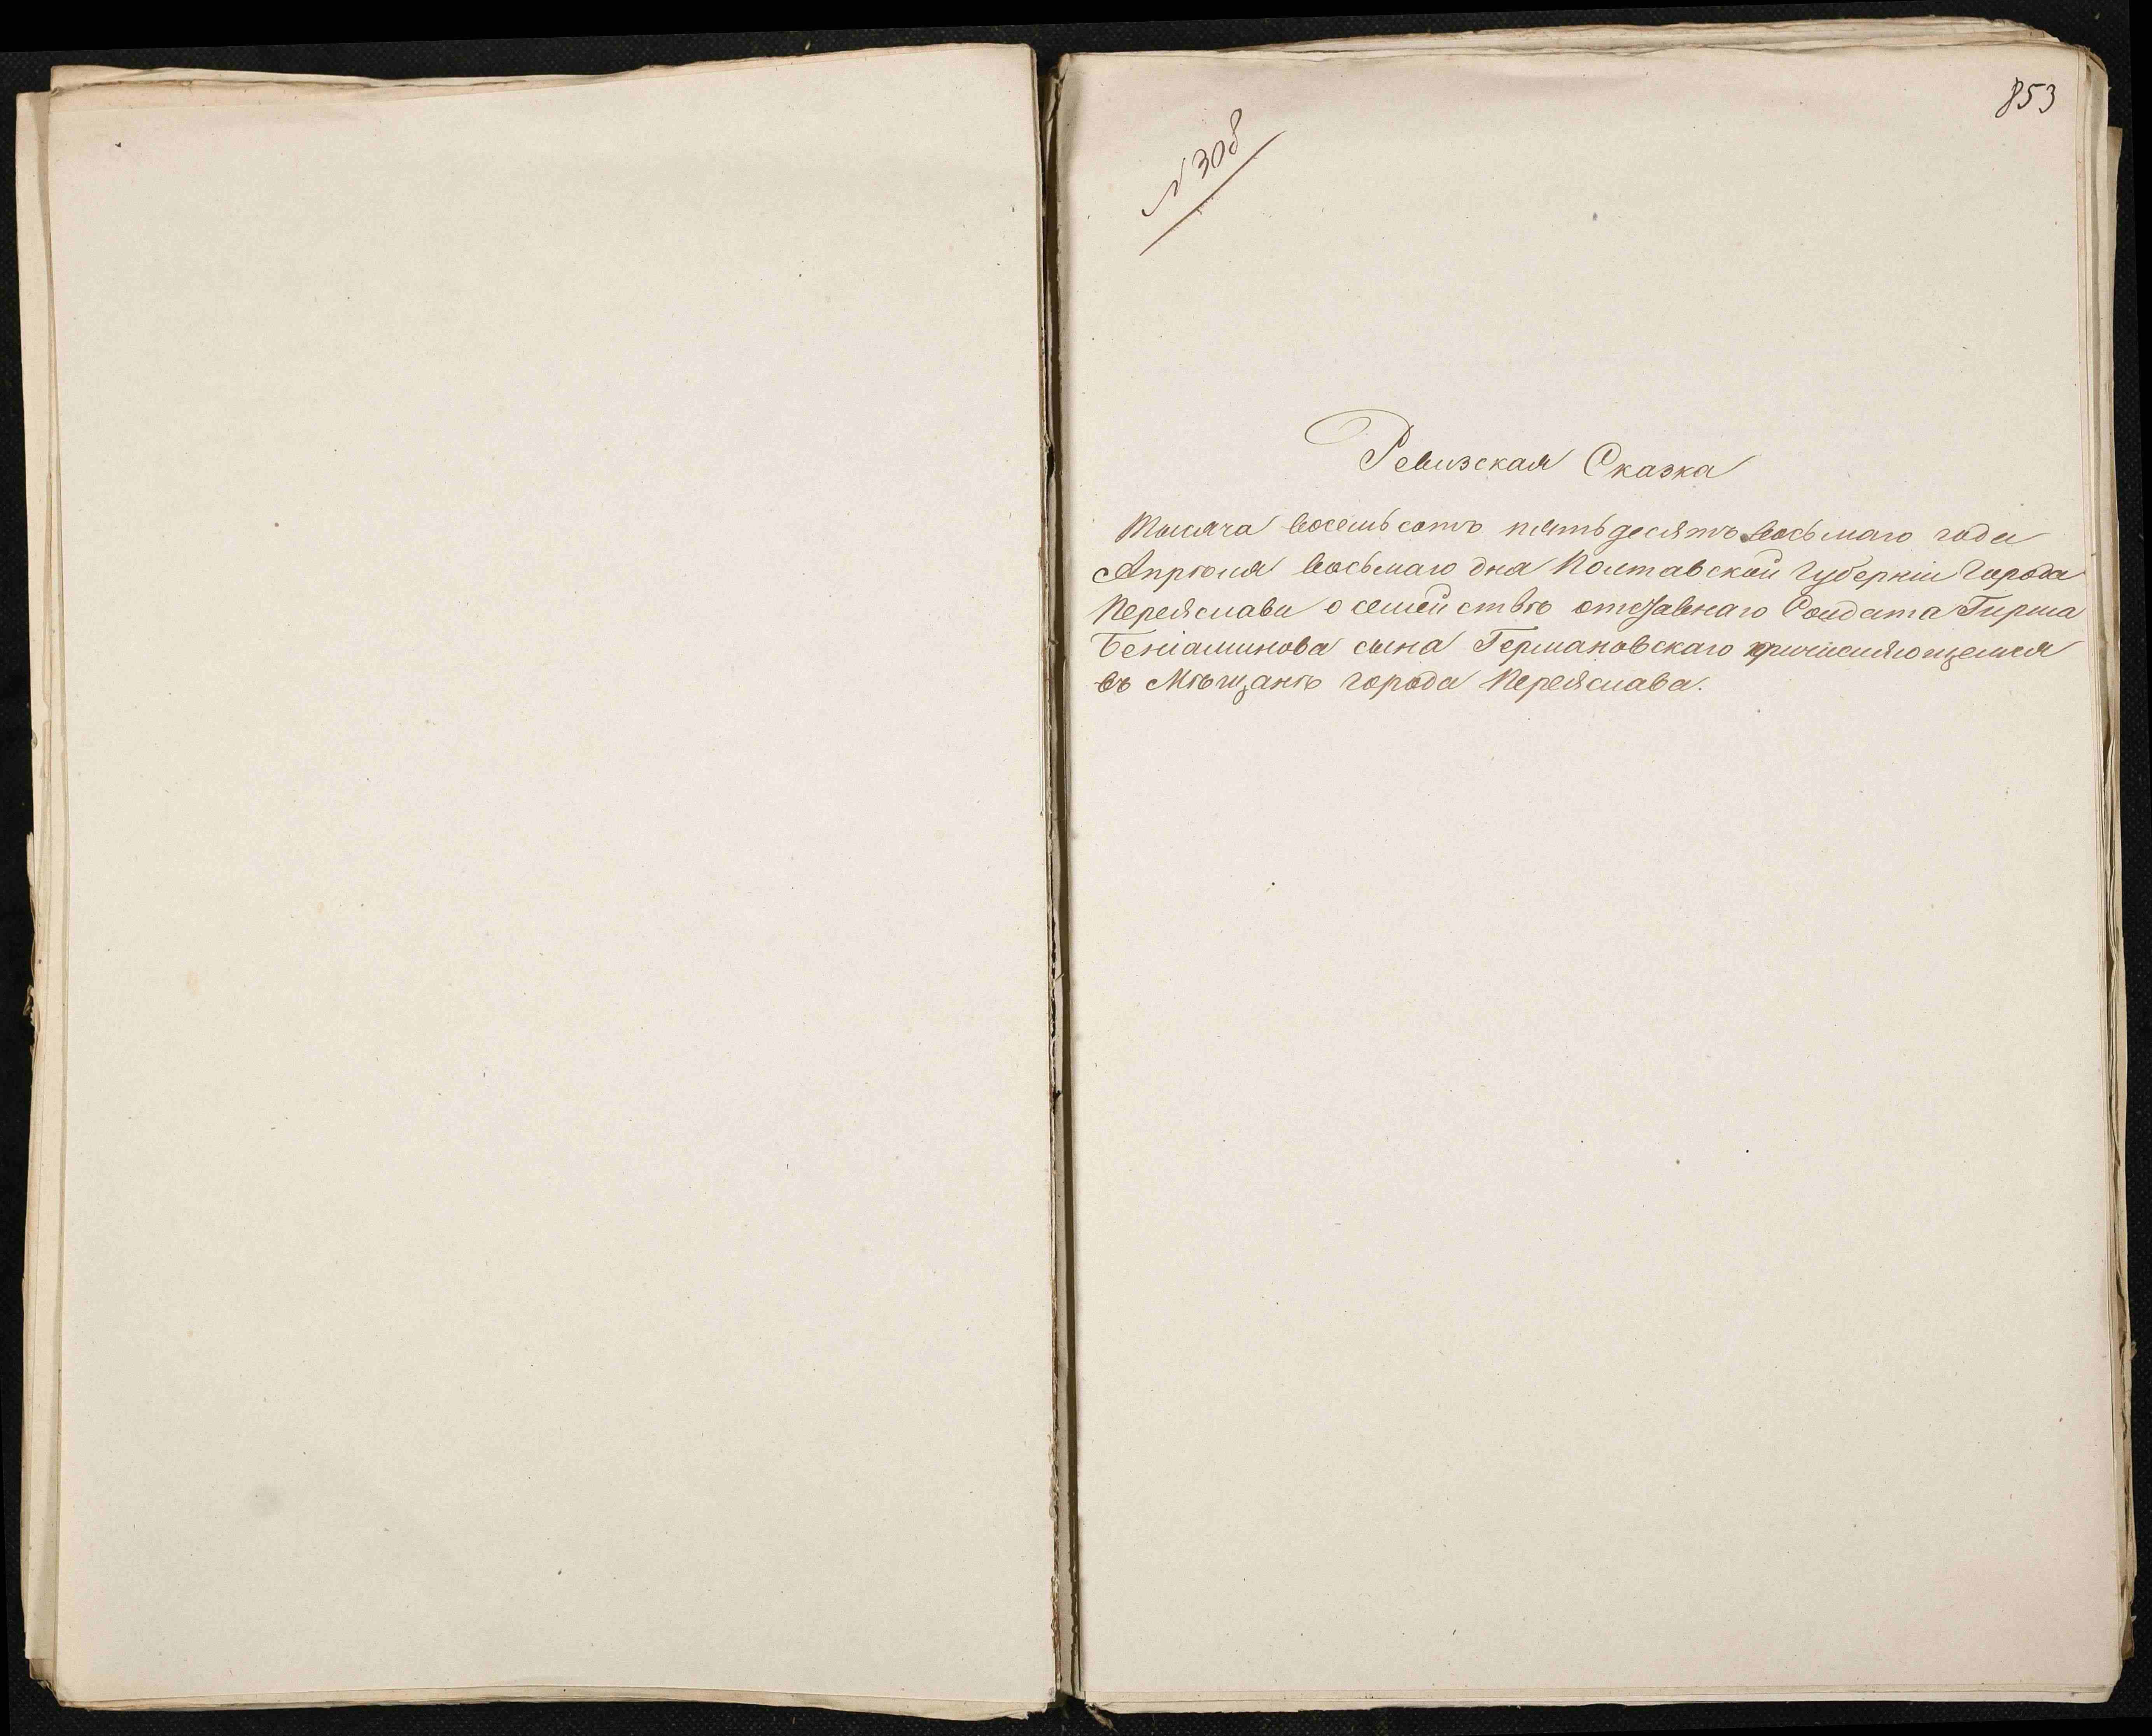 853
N 308
Ревизская Сказка
Тысяча восемьсотъ пятьдесятъ восьмаго года
Апрѣля восьмаго дня Полтавской Губерніи Города
Переяслава о семействѣ отставнаго Солдата Гирша
Беніаминова сына Германовскаго причисляющемся
въ Мѣщанѣ города Переяслава.